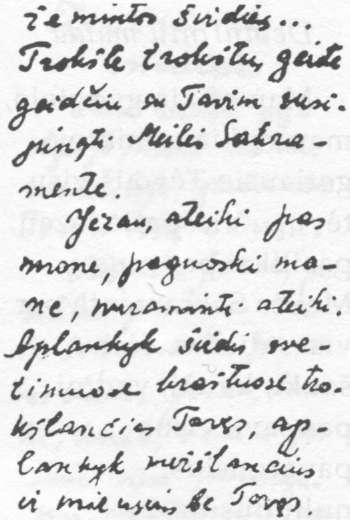 žemintos širdies...
Trokšte trokštu, geiste
geidžiu su Tavim susi-
jungti Meilės Sakra-
mente.
Jėzau, ateiki pas
mane, paguoski ma-
ne, nuraminti ateiki.
Aplankyk širdis sve-
timuose kraštuose tro-
kštančias Tavęs, ap-
lankyk mirštančius
ir mirusius be Tavęs